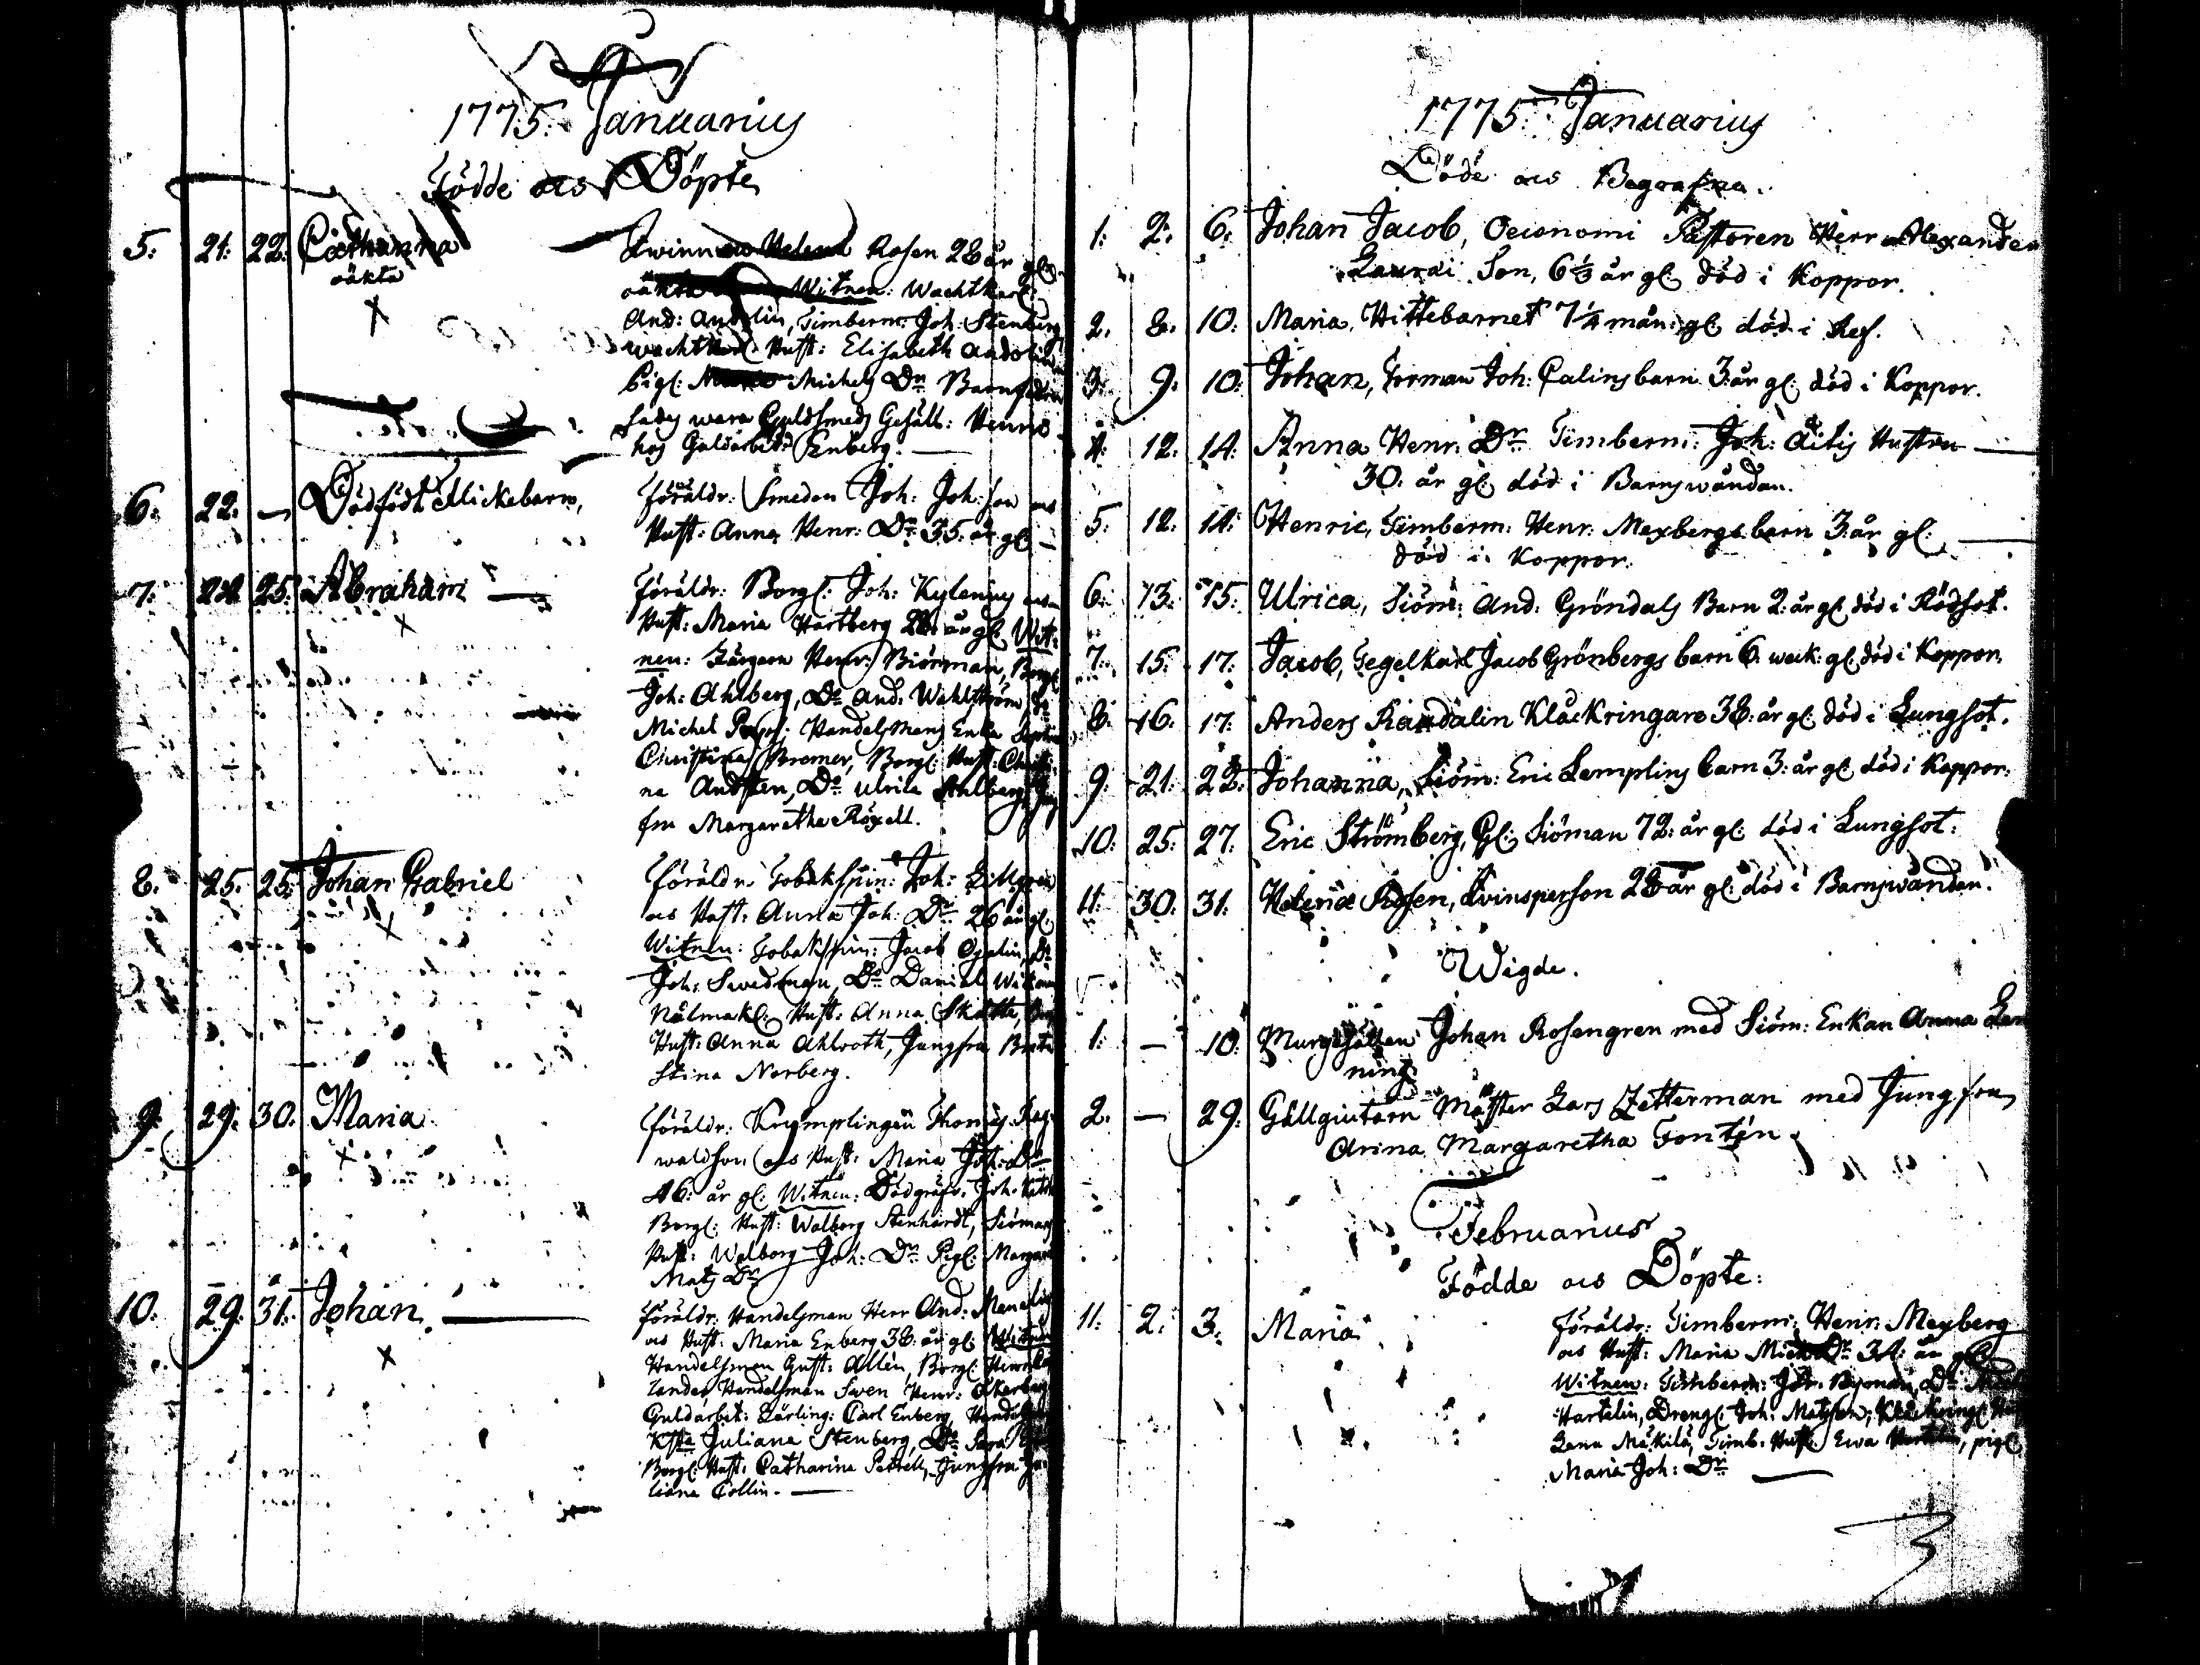 1775. Januarius
Födde ocs Döpte
5. 21. 22. Cathanna
oäkta
Qwinnan Helena Rosen 28 år gl.
oäkta Witnen: Wachtkarl:
And: Andelin, Timberm: Joh: Stenberg
wachtkarl. Hust: Elisabeth
Pigl: Michels Dr Barnfadren
sades wara Guldsmeds Gesäll:
hos Guldarbet: Enberg.
6. 22. — Dödfödt flickebarn,
föräldr: Smeden Joh: Joh: son ocs
Hust: Anna Henr: Dr 35. år gl. —
7. 24. 25. Abraham
föräldr: Borgl: Joh: Kylenius ocs
Hust: Maria Hartberg 28. år gl. Wit-
nen: Färgaren Henr: Biörman, Borgl
Joh: Ahlberg, Do And: Wahlström, Do
Michel Handelsmans Enka
Christina Bremer, Borgl: Hust: Christi-
na Do Ulrila Ahlberg, Jung
fru Margaretha Röxell.
8. 25. 25. Johan Gabriel
föräldr: Tobakspin: Joh: Lillgren
ocs Hust: Anna Joh: Dr 26 år gl:
Witnen: Tobakspin: Jacob Do
Joh: Swedman, Do Daniel
Nålmak: Hust: Anna
Hust: Anna Ahlroth, Jungfru Brita
Stina Norberg.
9. 29. 30. Maria
föräldr: Krymplingen Thomas Rag-
waldson ocs Hust: Maria Joh: Dr
46. år gl: Witnen: Dödgräfv. Joh.
Borgl: Hust: Walborg Stenhardt, Siömans
Hust: Walborg Joh: Dr Pigl: Margar
Mats Dr
10. 29. 31. Johan
föräldr: Handelsman Herr And: Manelius
ocs Hust: Maria Enberg 38. år gl. Witnen
Handelsman Gust: Allén, Borgl:
Handelsman Swen Henr: Åkerberg
Guldarbet: Lärling: Carl Enberg,
Juliana Stenberg, Do Sara
Borgl: Hust: Catharina Jungfru Ju-
liana Collin.
1775. Januarius
Döde ocs Begrafne.
1. 2. 6. Johan Jacob, Oeconomi Pastoren Herr Alexander
Lauræi Son, 6 1/3 år gl. död i Koppor.
2. 8. 10. Maria, Hittebarnet 7 1/4 mån: gl. död i Ref.
3. 9. 10. Johan, Forman Joh: Calins barn 3: år gl. död i Koppor.
4. 12. 14. Anna Henr: Dr Timberm: Joh: Hustru
30. år gl. död i Barnswåndan.
5. 12. 14. Henric, Timberm: Henr: Mexbergs barn 3: år gl.
död i Koppor.
6. 13. 15. Ulrica, Siöm: And: Gröndals Barn 2: år gl. död i Rödsot.
7. 15. 17. Jacob, Tegelkarl Jacob Grönbergs barn 6. weck: gl. död i Koppor.
8. 16. 17. Anders Randalin Klåckringare 38. år gl. död i Lungsot.
9. 21. 22. Johanna, Siöm: Eric Lemplins barn 3: år gl. död i Koppor.
10. 25. 27. Eric Strömberg, Gl: Siöman 72: år gl: död i Lungsot.
11. 30. 31. Helena Rosen, Qvinsperson 28 år gl. död i Barnswåndan.
Wigde.
1. — 10. Murgesällen Johan Rosengren med Siöm: Enkan Anna
ning
2. — 29. Gällgiutarn Mäster Lars Zetterman med Jungfru
Anna Margaretha Fontén.
Februarius
Födde ocs Döpte:
11. 2. 3. Maria
föräldr: Timberm: Henr: Mexberg
ocs Hust: Maria Dr 34: år gl.
Witnen: Timberm: Joh: Do
Hartelin, Drengl: Joh: Matsson, Klåckring:
Lena Mäkilä, Timb: Hust: Ewa pigl:
Maria Joh: Dr